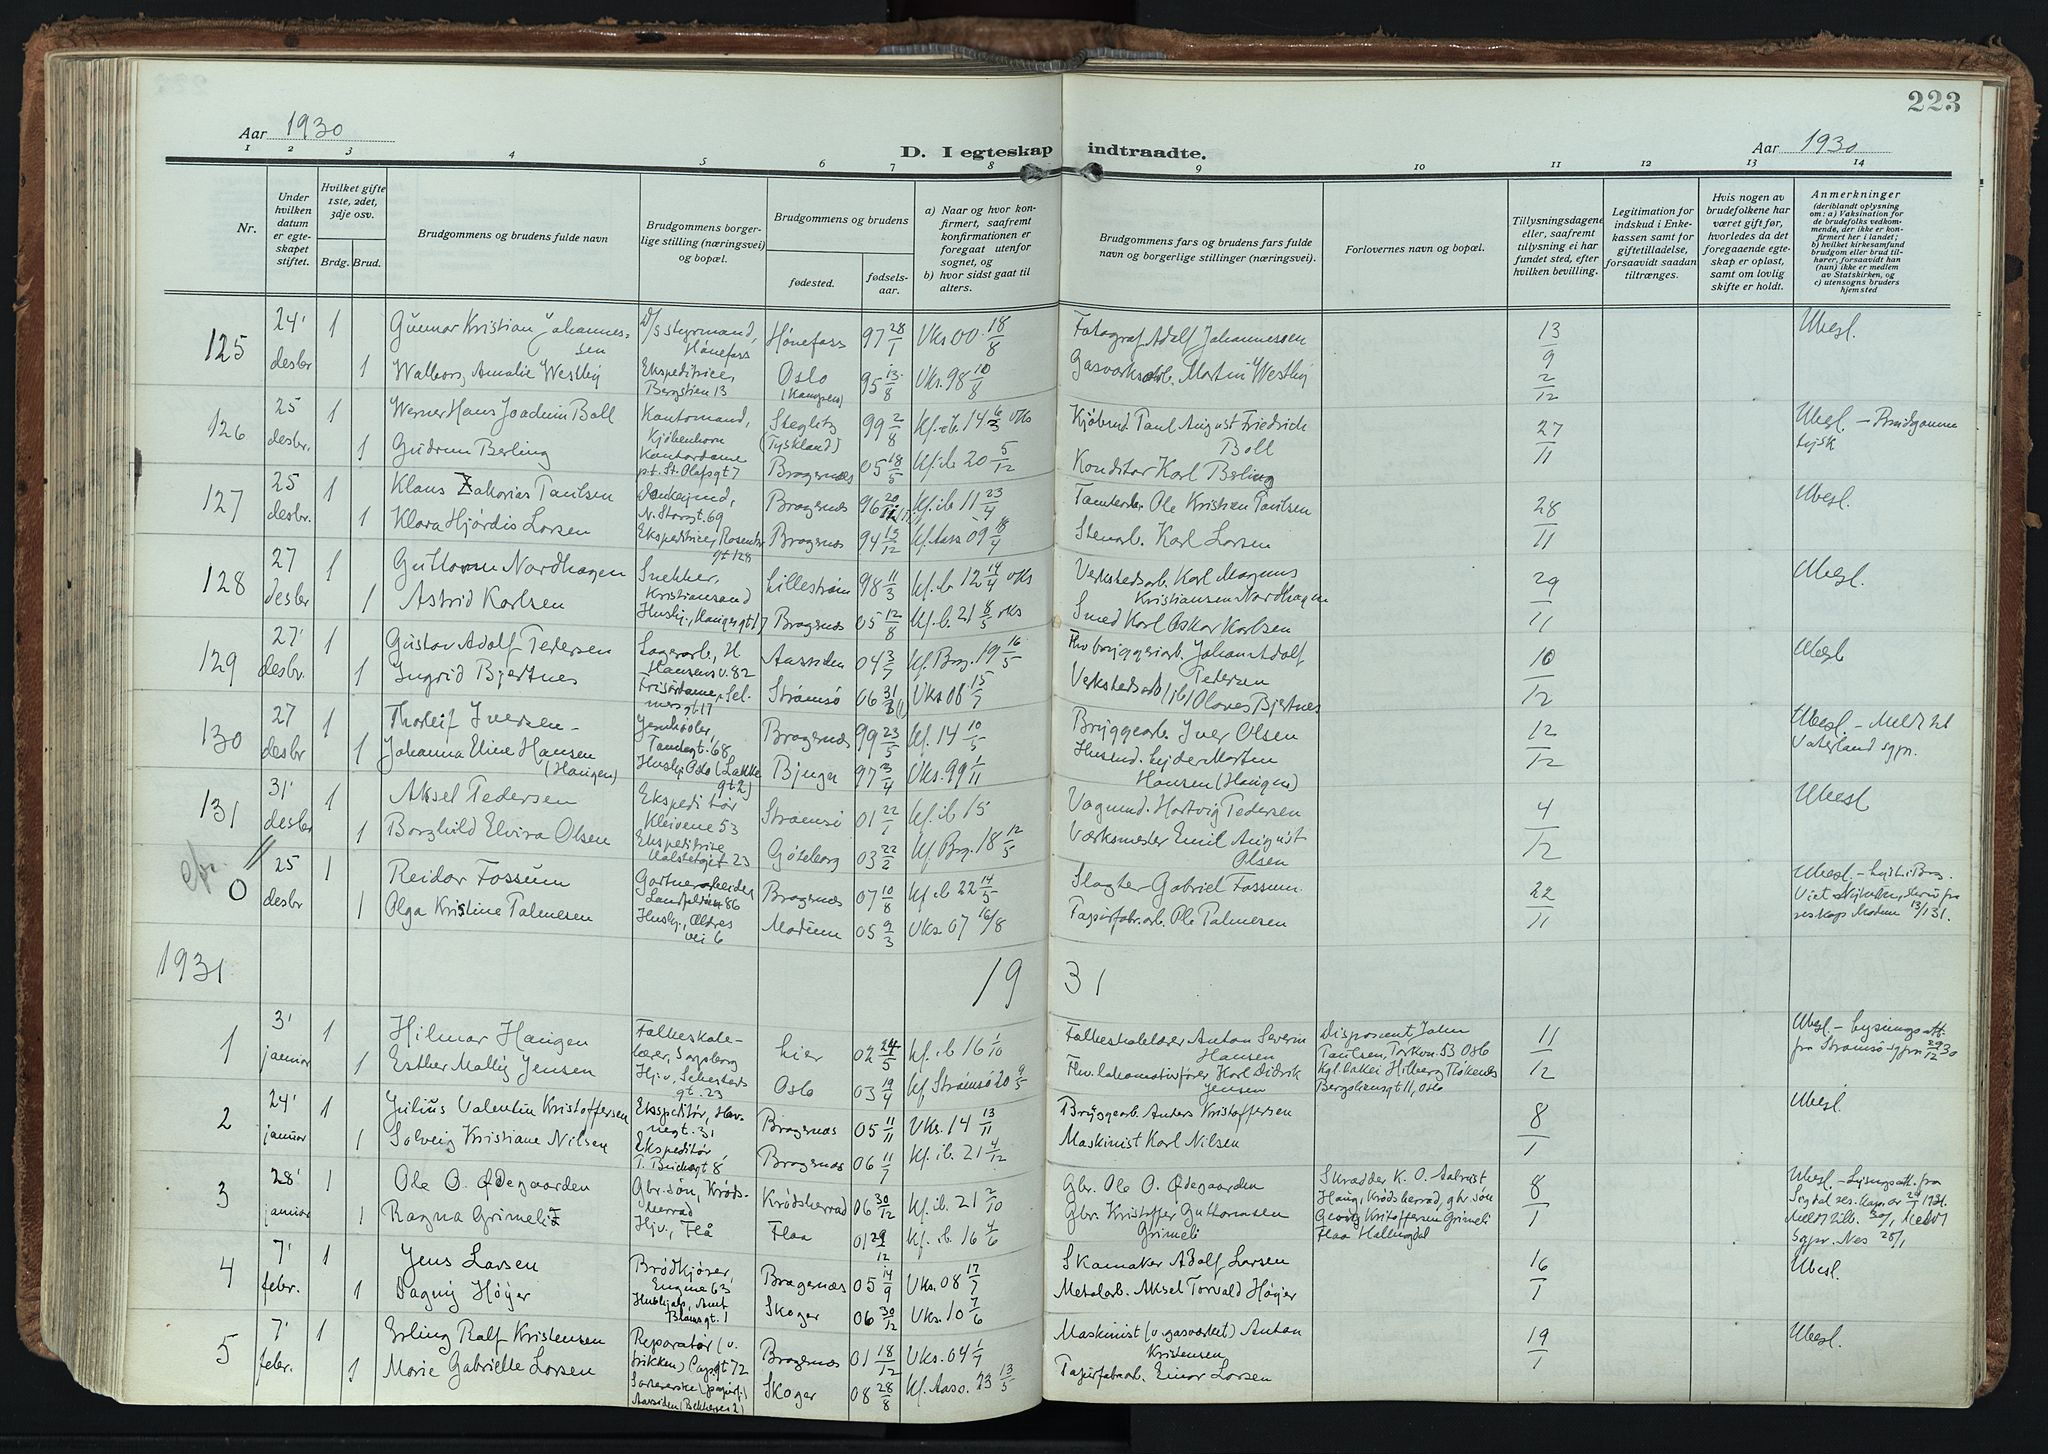 223
Aar 1930
D. I egteskap indtraadte.
Aar 1930
1 2 3 4 5 6 7 8 9 10 11 12 13 14
Nr.
Under hvilken datum er egteskapet stiftet.
Hvilket gifte 1ste, 2det, 3dje osv.
Brdg. Brud.
Brudgommens og brudens fulde navn
Brudgommens borgerlige stilling (næringsvei) og bopæl.
Brudgommens og brudens
fødested. fødselsaar.
a) Naar og hvor konfirmert, saafremt konfirmationen er foregaat utenfor sognet, og
b) hvor sidst gaat til alters.
Brudgommens fars og brudens fars fulde navn og borgerlige stillinger (næringsvei).
Forlovernes navn og bopæl.
Tillysningsdagene eller, saafremt tillysning ei har fundet sted, efter hvilken bevilling.
Legitimation for indskud i Enkekassen samt for giftetilladelse, forsaavidt saadan tiltrænges.
Hvis nogen av brudefolkene har været gift før, hvorledes da det foregaaende egteskap er opløst, samt om lovlig skifte er holdt.
Anmerkninger (deriblandt oplysning om: a) Vaksination for de brudefolks vedkommende, der ikke er konfirmert her i landet; b) hvilket kirkesamfund brudgom eller brud tilhører, forsaavidt han (hun) ikke er medlem av Statskirken, og c) utensogns bruders hjemsted
125 24' desbr 1 Gunnar Kristian Johannessen D/s styrmand, Hønefoss Hønefoss 97 28/1 Vks 00 18/8 Fotograf Adolf Johannessen 13/9 Ubesl.
1 Walborg Amalie Westby Ekspeditrice, Bergstien 13 Oslo (Kampen) 95 13/8 Vks. 98 10/8 Gasverksarb. Martin Westby 2/12
126 25 desbr. 1 Werner Hans Joachim Boll Kontormand, Kjøbenhavn Steglitz (Tyskland) 99 2/8 Kf. ib 14 6/3 vks Kjøbmd Paul August Friedrich Boll 27/11 Ubesl. – Brudgommen tysk
1 Gudrun Berling Kontordame p.t. St. Olafsgt 7 Bragernæs 05 18/5 Kf. ib 20 5/12 Konditor Karl Berling
127 25 desbr. 1 Klaus Zakarias Paulsen N. Storgt. 69 Bragernæs 96 20/12 Kf. ib 11 23/4 Tomtearb. Ole Kristian Paulsen 28/11 Ubesl.
1 Klara Hjørdis Larsen Ekspeditrice, Rosenkr gt 128 Bragernæs 94 13/12 Kf. Aass 09 18/4 Stenarb. Karl Larsen
128 27 desbr 1 Guttorm Nordhagen Snekker, Kristiansand Lillestrøm 98 11/3 Kf. ib 12 14/4 vks Verkstedsarb. Karl Magnus Kristiansen Nordhagen 29/11 Ubesl.
1 Astrid Karlsen Hushj., Haugesgt 17 Bragernæs 05 12/8 Kf. ib. 21 8/5 vks Smed Karl Oskar Karlsen
129 27' desbr. 1 Gustav Adolf Pedersen Lagerarb., H Hansens v. 82 Aassiden 04 3/7 Kf. Brg. 19 16/5 Fhv bryggeriarb. Johan Adolf Pedersen 10/12 Ubesl
1 Ingrid Bjertnes Frisørdame, Selmersgt 17 Strømsø 06 31/8 Vks 08 15/7 Verkstedsarb Olaves Bjertnes
130 27 desbr 1 Thorleif Iversen Jernhøvler, Tomtegt. 68 Bragernæs 99 23/5 Kf. 14 10/5 Bryggearb. Iver Olsen 12/12 Ubesl. – Meldt til Vaterland sgpr.
1 Johanna Eline Hansen (Haugen) Hushj. Oslo (Lakkegt 2) Bjugn 97 3/4 Vks. 99 1/11 Husmd. Lyder Morten Hansen (Haugen)
131 31' desbr 1 Aksel Pedersen Ekspeditør Kleivene 53 Strømsø 01 22/1 Kf. ib 15 Vognmd. Hartvig Pedersen 4/12 Ubesl
1 Borghild Elvira Olsen Ekspeditrice 23 Göteborg 03 22/2 Kf. Brg. 18 12/5 Værksmester Emil August Olsen
0 25 desbr 1 Reidar Fossum Gartnerarbeider 86 Bragernæs 07 10/8 Kf. ib 22 14/5 Slagter Gabriel Fossum 22/11 Ubesl. – Lyst i Brg. Viet Nykirken, skriv fra reskap Modum 13/1 31.
1 Olga Kristine Palmesen Hushj., Ældres vei 6 Modum 05 9/3 Vks. 07 16/8 Papirfabr.arb. Ole Palmesen
1931 19 31
1 3' januar 1 Hilmar Haugen Folkeskolelærer, Sarpsborg Lier 02 24/5 Kf. ib 16 1/10 Folkeskolelærer Anton Severin Hansen Disponent John Paulsen, Torkvn. 53 Oslo 11/12 Ubesl. – Lysningsatt. fra Strømsø sgpr. 29/12 30
1 Esther Mally Jensen Hj. v., Schesteds gt. 23 Oslo 03 19/4 Kf Strømsø 20 9/5 Fhv. lokomotivfører Karl Didrik Jensen Kgl. lakei Hilberg Røkenes Bergsliensgt 11, Oslo
2 24' januar 1 Julius Valentin Kristoffersen Ekspeditør, Havnegt. 31 Bragernæs 05 11/11 Vks. 14 13/11 Bryggearb. Anders Kristoffersen 8/1 Ubesl.
1 Solveig Kristiane Nilsen Ekspeditør T. Buchsgt 8 Bragernæs 06 11/7 Kf. ib. 21 4/12 Maskinist Karl Nilsen
3 28' januar 1 Ole O. Ødegaarden Gbr. søn, Krødsherrad Krødsherrad 06 30/12 Kf. ib. 21 2/10 Gbr. Ole O. Ødegaarden Skrædder K. O. Haug, Krødsherrad, gbr. søn 8/1 Ubesl. – Lysningsatt. fra Sigdal res. kap. av 24/1 1931. Meldt tilb. 30/1
1 Ragna Grimeli Hjv., Flå Flaa 01 29/12 Kf. ib 16 4/6 Gbr. Kristoffer Guttormsen Grimeli Georg Kristoffersen Grimeli Flaa Hallingdal Meldt Sgpr. Nes 28/1
4 7' febr. 1 Jens Larsen Brødkjører, Engene 63 Bragernæs 05 14/9 Vks. 08 17/7 Skomaker Adolf Larsen 16/1 Ubesl.
1 Dagny Höyer Hushjelp, Amt Blomsgt. 1 Skoger 06 30/12 Vks. 10 7/6 Metalarb. Aksel Torvald Høyer
5 7' febr. 1 Erling Ralf Kristensen Reparatør (v. brikken) Capsgt 72 Bragernæs 01 18/12 Vks. 04 1/7 Maskinist (v. gasverket) Anton Kristensen 19/1 Ubesl.
1 Marie Gabrielle Larsen Aassiden Skoger 08 28/8 Kf. Aass. 23 13/5 Papirfabarb. Einar Larsen